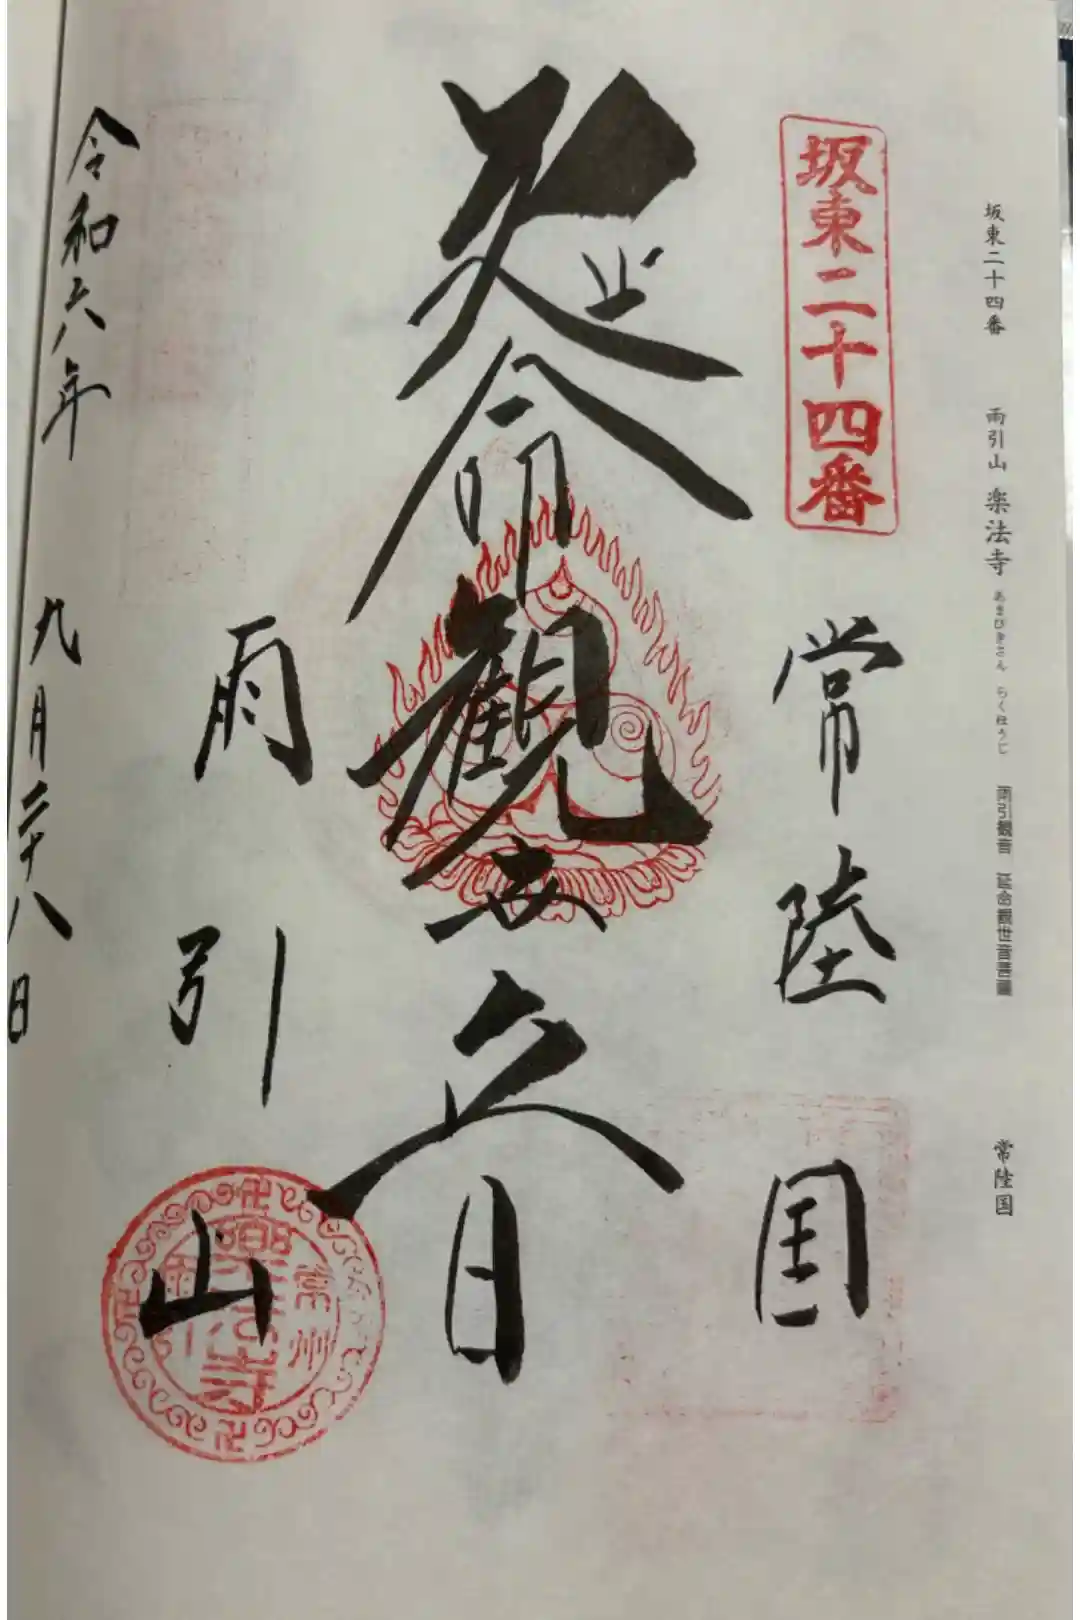 坂東二十四番 雨引山 楽法寺 あまびきさん らくほうじ 雨引観音 延命観世音菩薩 常陸国
坂東二十四番
常陸国
延命観世音
雨引山
常州 楽法寺 雨引
令和六年 九月二十八日